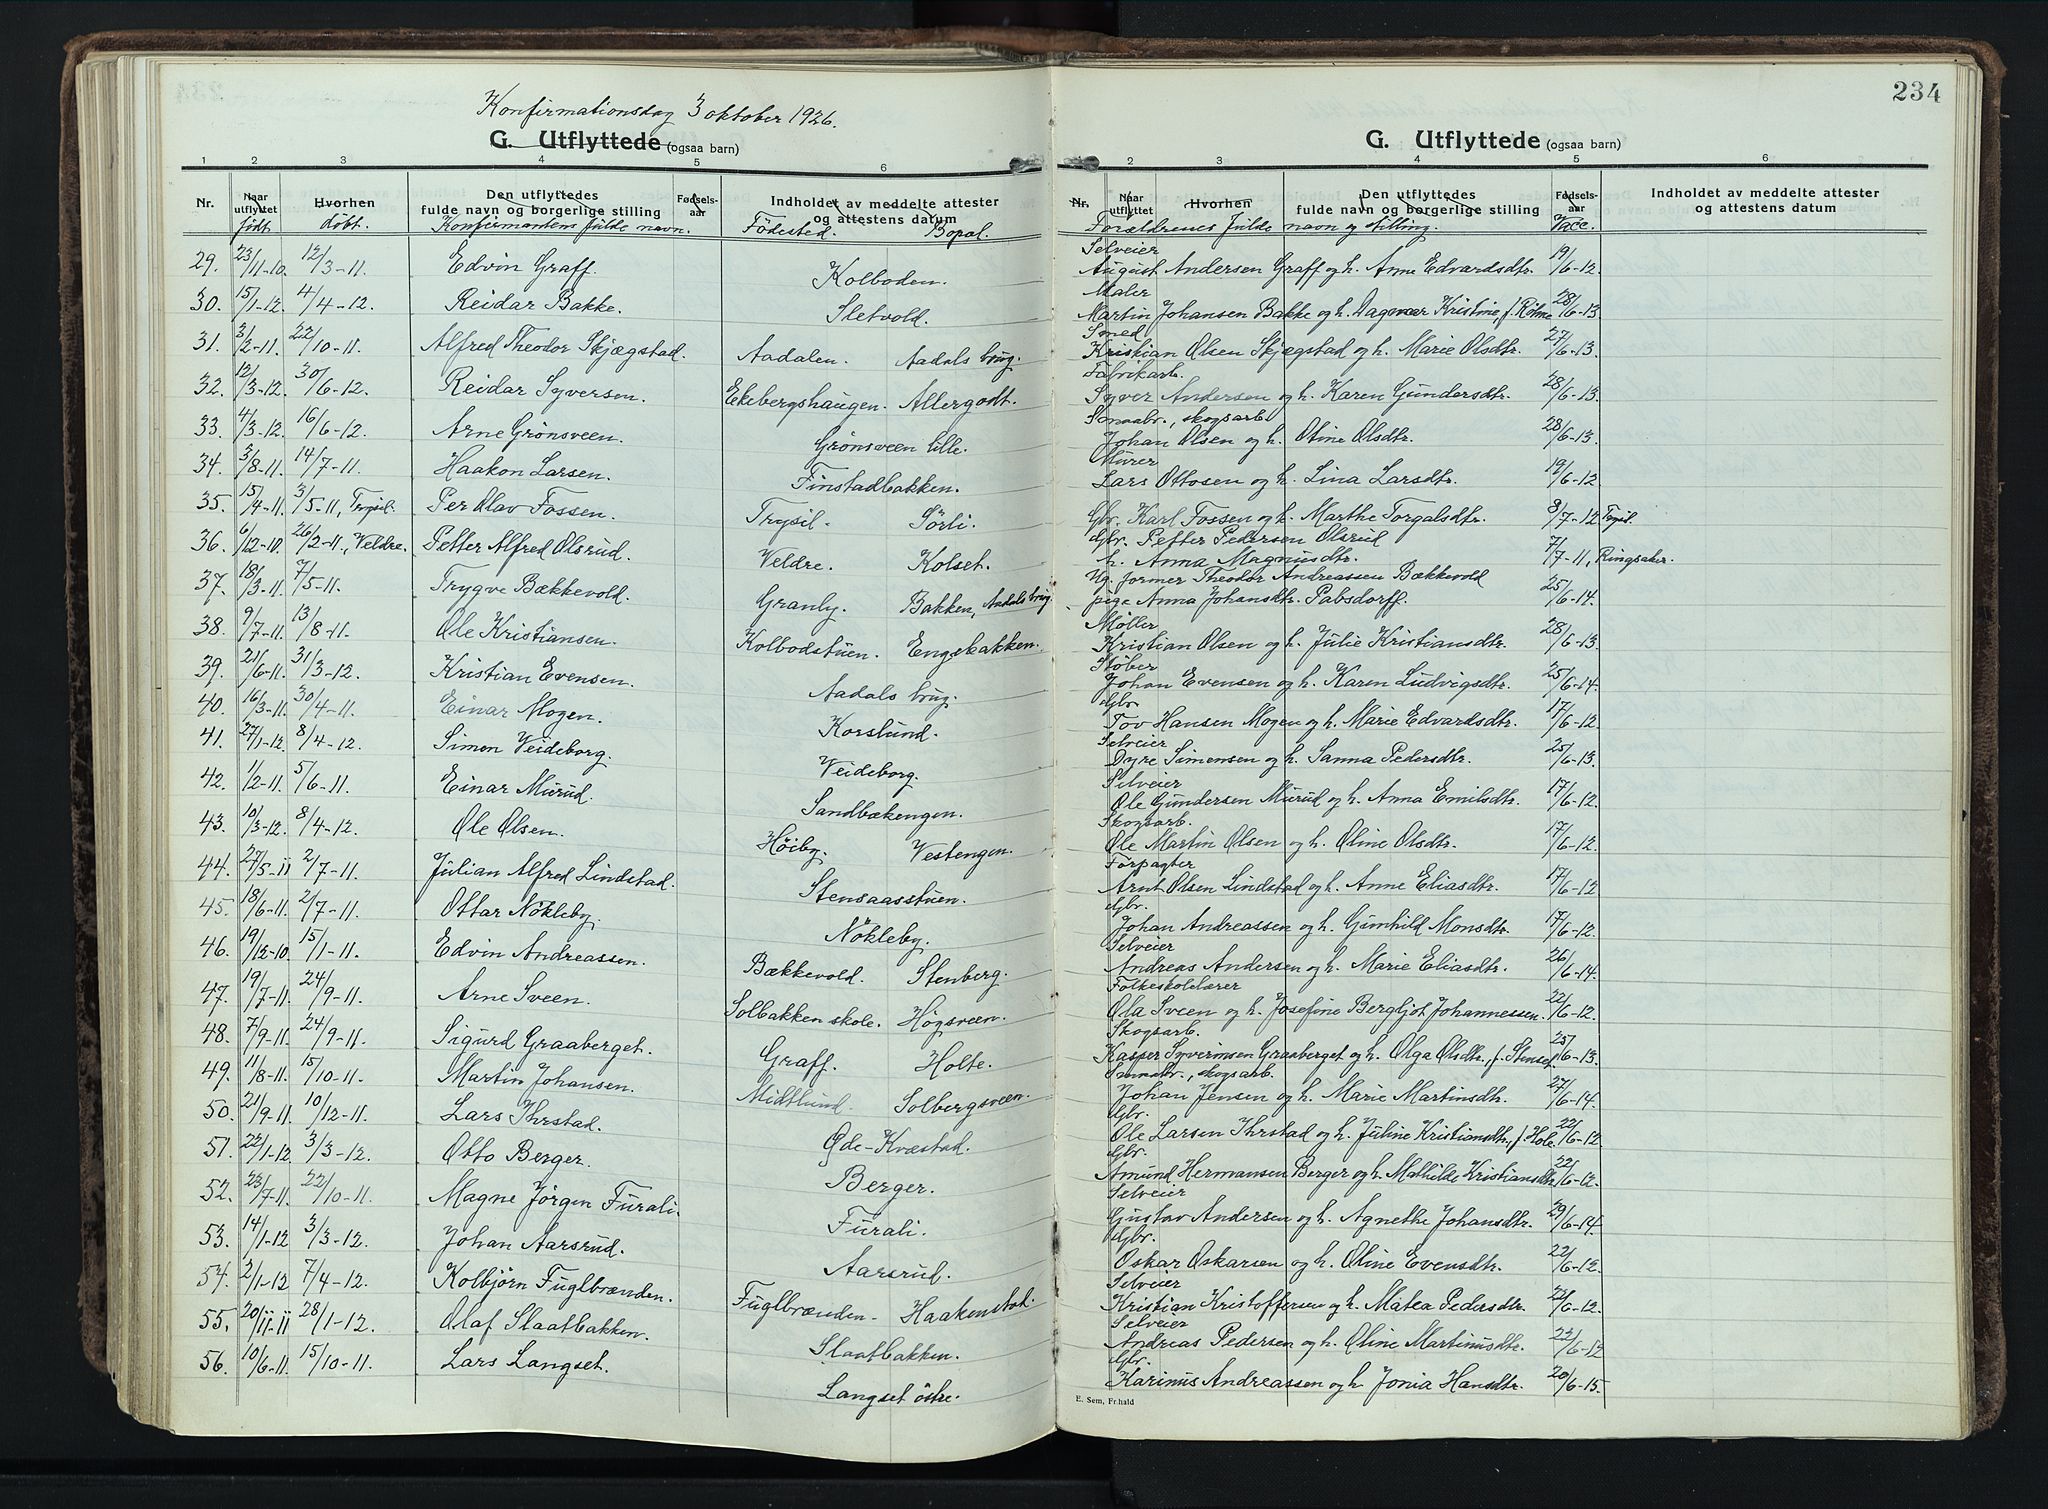 234
Konfirmationsdag 3 oktober 1926.
G. Utflyttede (ogsaa barn)
1 2 3 4 5 6
Nr. Naar utflyttet Hvorhen Den utflyttedes fulde navn og borgerlige stilling Fødsels-aar Indholdet av meddelte attester og attestens datum
født. døbt. Konfirmantens fulde navn. Fødested. Bopæl.
29. 23/11-10. 12/3-11. Edvin Graff. Kolboden.
30. 15/1-12. 4/4-12. Reidar Bakke. Sletvold.
31. 3/2-11. 22/10-11. Alfred Theodor Skjægstad. Aadalen. Aadals brug.
32. 12/3-12. 30/6-12. Reidar Syversen. Ekebergshaugen. Allergodt.
33. 4/3-12. 16/6-12. Arne Grønsveen. Grønsveen lille.
34. 3/8-11. 14/7-11. Haakon Larsen. Finstadbakken.
35. 15/4-11. 3/5-11, Trysil. Per Olav Fossen. Trysil. Sörli.
36. 6/12-10. 26/2-11, Veldre. Petter Alfred Olsrud. Veldre. Kolset.
37. 18/3-11. 7/5-11. Trygve Bækkevold. Granly. Bakken, Aadals brug.
38. 9/7-11. 13/8-11. Ole Kristiansen. Kolbodstuen. Engebakken.
39. 21/6-11. 31/3-12. Kristian Evensen. Aadals brug.
40. 16/3-11. 30/4-11. Einar Mogen. Korslund.
41. 27/1-12. 8/4-12. Simen Veideborg. Veideborg.
42. 1/2-11. 5/6-11. Einar Murud. Sandbækengen.
43. 10/3-12. 8/4-12. Ole Olsen. Höiby. Vestengen.
44. 27/5-11 2/7-11. Julian Alfred Lindstad. Stensaasstuen.
45. 18/6-11. 2/7-11. Ottar Nökleby. Nökleby.
46. 19/12-10. 15/1-11. Edvin Andreassen. Bækkevold. Stenberg.
47. 19/7-11. 24/9-11. Arne Sveen. Solbakken skole. Högsveen.
48. 7/9-11. 24/9-11. Sigurd Graaberget. Graff. Holte.
49. 11/8-11. 15/10-11. Martin Johansen. Midtlund. Solbergsveen.
50. 21/9-11. 10/12-11. Lars Ihrstad. Gde-Kvæstad.
51. 22/1-12. 3/3-12. Otto Berger. Berger.
52. 23/7-11. 22/10-11. Magne Jörgen Furali. Furali.
53. 14/1-12 3/3-12. Johan Aarsrud. Aarsrud.
54. 2/1-12 7/4-12. Kolbjörn Fuglbrænden. Fuglbrænden. Haakenstad.
55. 20/11-11 28/1-12. Olaf Slaatbakken. Slaatbakken.
56. 10/6-11. 15/10-11. Lars Langset. Langset östre.
G. Utflyttede (ogsaa barn)
1 2 3 4 5 6
Nr. Naar utflyttet Hvorhen Den utflyttedes fulde navn og borgerlige stilling Fødsels-aar Indholdet av meddelte attester og attestens datum
Forældrenes fulde navn og stilling. Vacc.
Selveier
August Andersen Graff og h. Anne Edvardsdtr. 19/6-12.
Maler
Martin Johansen Bakke og h. Dagmar Kristine, f. Röhne 28/6-13.
Smed
Kristian Olsen Skjægstad og h. Marie Olsdtr. 27/6-13.
Fabrikarb.
Syver Andersen og h. Karen Gundersdtr. 28/6-13.
Smaabr., skogsarb.
Johan Olsen og h. Oline Olsdtr. 28/6-13.
Murer
Lars Ottosen og h. Lina Larsdtr. 19/6-12.
Gbr. Karl Fossen og h. Marthe Torgalsdtr. 8/7-12 Trysil.
Gbr. Petter Pedersen Olsrud
h. Anna Magnusdtr. 7/7-11, Ringsaker.
Ug. former Theodor Andreassen Bækkevold
pige Anna Johansdtr. Pabsdorff. 25/6-14.
Møller
Kristian Olsen og h. Julie Kristiansdtr. 28/6-13.
Støber
Johan Evensen og h. Karen Ludvigsdtr. 25/6-14.
Gbr
Tov Hansen Mogen og h. Marie Edvardsdtr. 17/6-12.
Selveier
Dyre Simensen og h. Sanna Pedersdtr. 25/6-13.
Selveier
Ole Gundersen Murud og h. Anna Emilsdtr. 17/6-12.
Skogsarb.
Ole Martin Olsen og h. Oline Olsdtr. 17/6-12.
Forpagter
Arnt Olsen Lindstad og h. Anne Eliasdtr. 17/6-12
Gbr.
Johan Andreassen og h. Gunhild Monsdtr. 17/6-12.
Selveier
Andreas Andersen og h. Marie Eliasdtr. 26/6-14.
Folkeskolelærer
Ola Sveen og h. Josefine Bergljot Johannessen. 22/6-12.
Skogsarb.
Kasper Syverinsen Graaberget og h. Olga Olsdtr., f. Stenset 25/6-13.
Smaabr., skogsarb.
Johan Jensen og h. Marie Martinsdtr. 27/6-14.
Gbr.
Ole Larsen Ihrstad og h. Juline Kristiansdtr., f. Hole. 22/6-12
Gbr.
Amund Hermansen Berger og h. Mathilde Kristiansdtr 22/6-12.
Selveier
Gustav Andersen og h. Agnethe Johansdtr. 29/6-14.
Gbr.
Oskar Oskarsen og h. Oline Evensdtr. 22/6-12.
Selveier
Kristian Kristoffersen og h. Matea Pedersdtr. 22/6-12.
Selveier
Andreas Pedersen og h. Oline Martinusdtr. 22/6-12
Gbr.
Karinus Andreassen og h. Jonia Hansdtr. 20/6-15.
E. Sem, Fr.hald